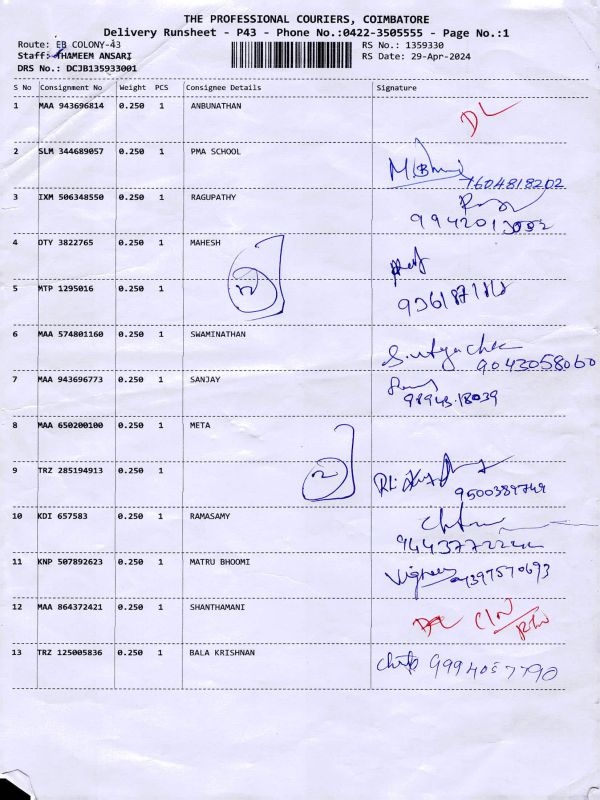 THE PROFESSIONAL COURIERS, COIMBATORE
Delivery Runsheet - P43 - Phone No.:0422-3505555 - Page No.:1
Route: EB COLONY-43 RS No.: 1359330
Staff: THAMEEM ANSARI RS Date: 29-Apr-2024
DRS No.: DCJB135933001
S No Consignment No Weight PCS Consignee Details Signature
1 MAA 943696814 0.250 1 ANBUNATHAN DL
2 SLM 344689057 0.250 1 PMA SCHOOL
7604818202
3 IXM 506348550 0.250 1 RAGUPATHY
4 OTY 3822765 0.250 1 MAHESH
2
5 MTP 1295016 0.250 1
6 MAA 574801160 0.250 1 SWAMINATHAN
9043058060
7 MAA 943696773 0.250 1 SANJAY
98943.18039
8 MAA 650200100 0.250 1 META
2
9 TRZ 285194913 0.250 1
9500389749
10 KDI 657583 0.250 1 RAMASAMY
11 KNP 507892623 0.250 1 MATRU BHOOMI
7397570693
12 MAA 864372421 0.250 1 SHANTHAMANI
13 TRZ 125005836 0.250 1 BALA KRISHNAN 9994057790